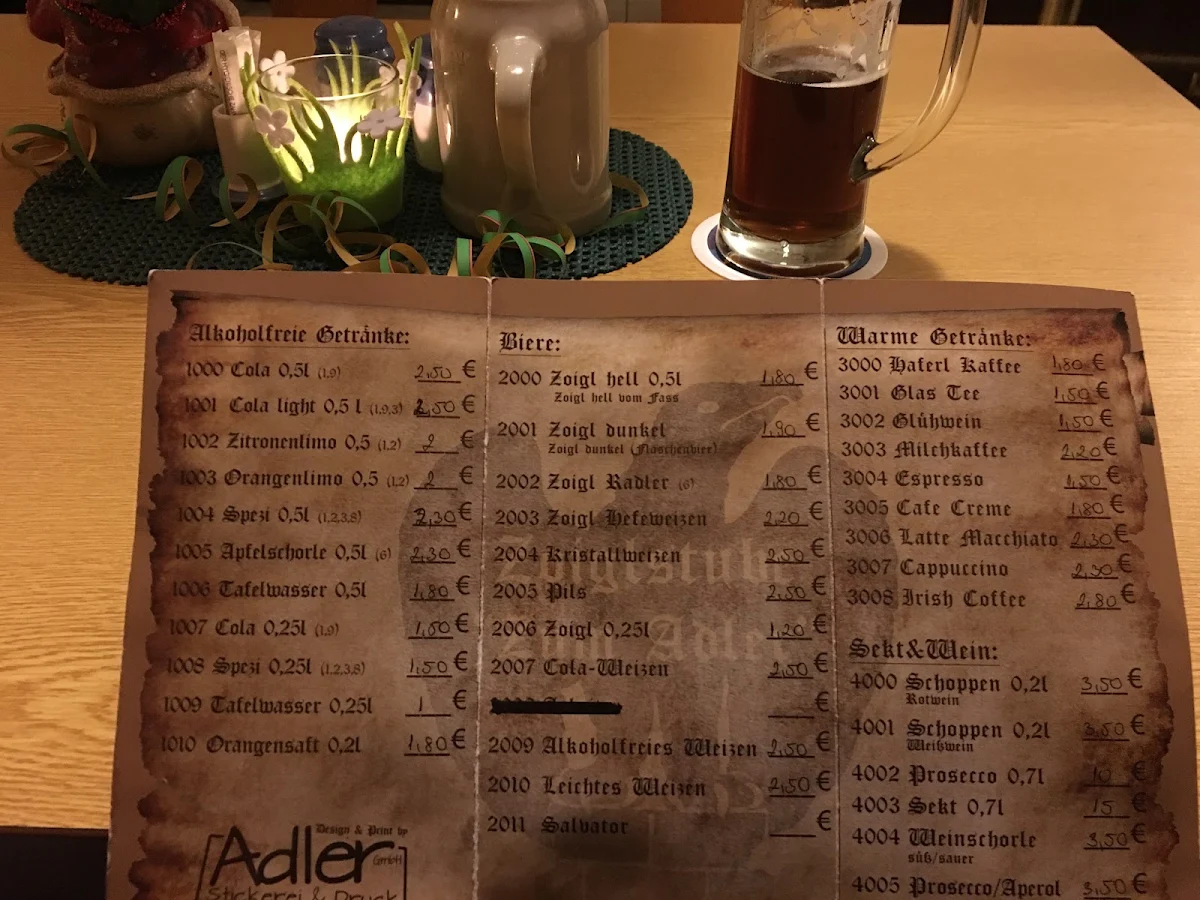 Alkoholfreie Getränke:
1000 Cola 0,5l (1,9) 2,50 €
1001 Cola light 0,5 l (1,9,3) 2,50 €
1002 Zitronenlimo 0,5 (1,2) 2 €
1003 Orangenlimo 0,5 (1,2) 2 €
1004 Spezi 0,5l (1,2,3,8) 2,30 €
1005 Apfelschorle 0,5l (6) 2,30 €
1006 Tafelwasser 0,5l 1,80 €
1007 Cola 0,25l (1,9) 1,50 €
1008 Spezi 0,25l (1,2,3,8) 1,50 €
1009 Tafelwasser 0,25l 1 €
1010 Orangensaft 0,2l 1,80 €
Design & Print by
Adler
GmbH
Stickerei & Druck
Biere:
2000 Zoigl hell 0,5l 1,80 €
Zoigl hell vom Fass
2001 Zoigl dunkel 1,90 €
Zoigl dunkel (Flaschenbier)
2002 Zoigl Radler (6) 1,80 €
2003 Zoigl Hefeweizen 2,20 €
2004 Kristallweizen 2,50 €
2005 Pils 2,50 €
2006 Zoigl 0,25l 1,20 €
2007 Cola-Weizen 2,50 €
€
2009 Alkoholfreies Weizen 2,50 €
2010 Leichtes Weizen 2,50 €
2011 Salvator €
Zoiglstube
Zum Adler
Warme Getränke:
3000 Haferl Kaffee 1,80 €
3001 Glas Tee 1,50 €
3002 Glühwein 1,50 €
3003 Milchkaffee 2,20 €
3004 Espresso 1,50 €
3005 Cafe Creme 1,80 €
3006 Latte Macchiato 2,30 €
3007 Cappuccino 2,30 €
3008 Irish Coffee 2,80 €
Sekt&Wein:
4000 Schoppen 0,2l 3,50 €
Rotwein
4001 Schoppen 0,2l 3,50 €
Weißwein
4002 Prosecco 0,7l 10 €
4003 Sekt 0,7l 15 €
4004 Weinschorle 3,50 €
süß/sauer
4005 Prosecco/Aperol 3,50 €